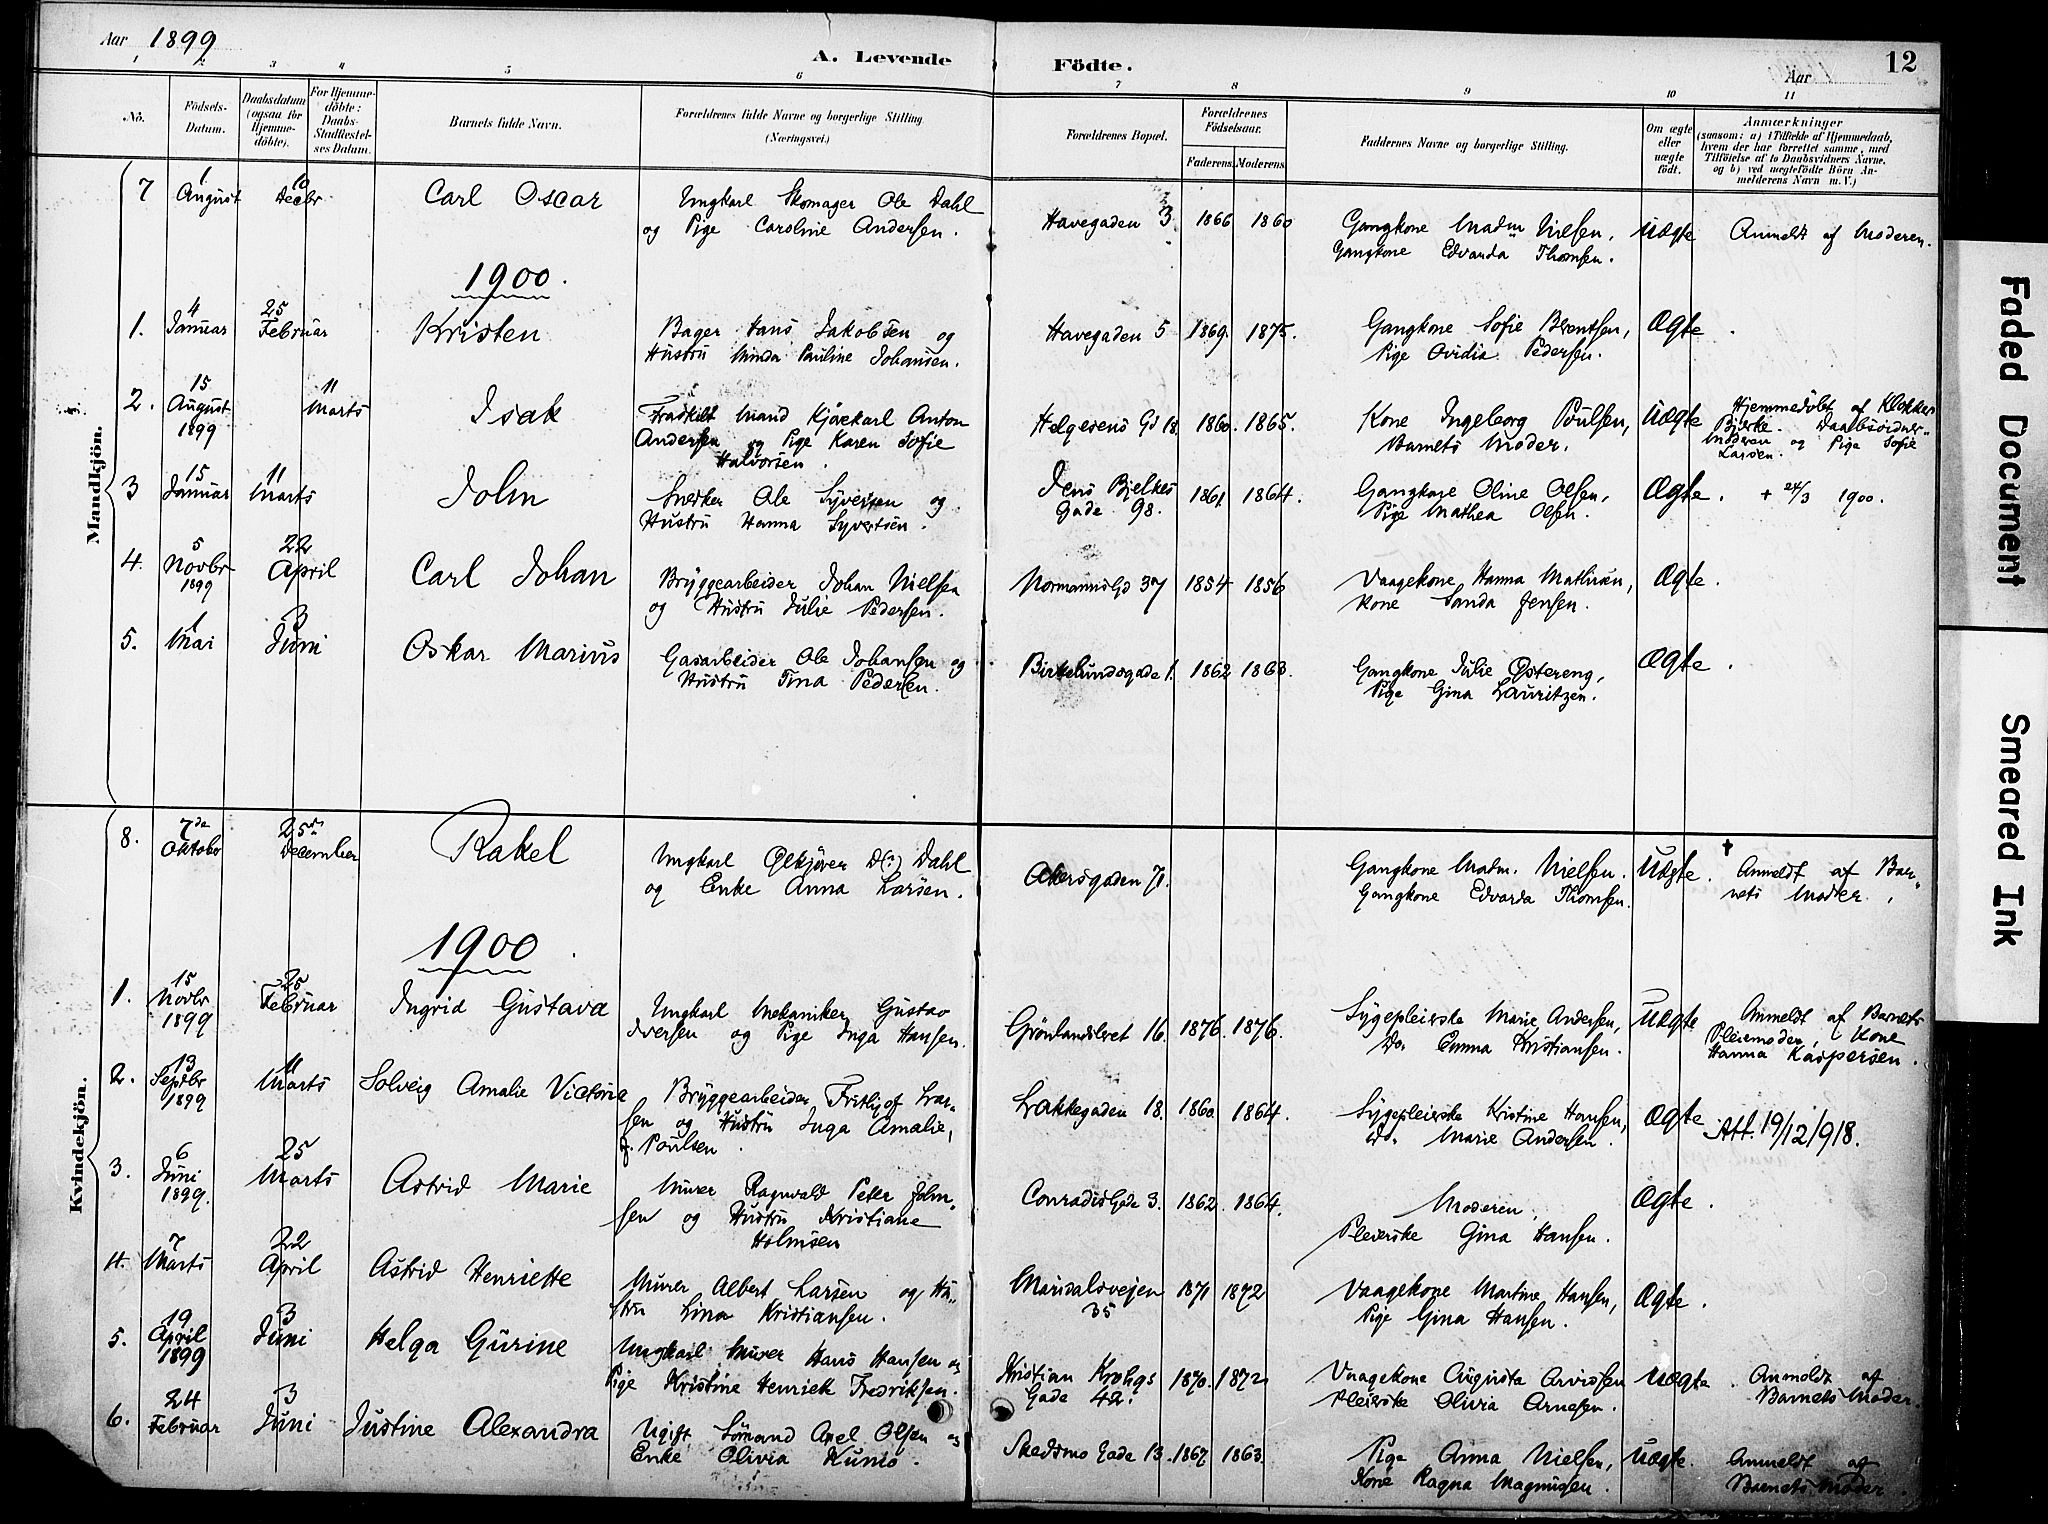 Aar 1899
A. Levende Födte.
Aar
12
1 2 3 4 5 6 7 8 9 10 11
No.
Födsels-Datum.
Daabsdatum (ogsaa for Hjemme-döbte).
For Hjemme-döbte: Daabs-Stadfæstel-ses Datum.
Barnets fulde Navn.
Forældrenes fulde Navne og borgerlige Stilling (Næringsvei.)
Forældrenes Bopæl.
Forældrenes Födselsaar.
Faderens. Moderens.
Faddernes Navne og borgerlige Stilling.
Om ægte eller uægte födt.
Anmærkninger
(saasom: a) i Tilfælde af Hjemmedaab, hvem der har forrettet samme, med Tilföielse af to Daabsvidners Navne, og b) ved uægtefödte Börn Anmelderens Navn m. V.)
Mandkjön.
7 1 August 10 Decbr Carl Oscar Ungkarl Skomager Ole Dahl og Pige Caroline Andersen. Havegaden 3 1866 1860 Gangkone Madm Nielsen, Gangkone Edvarda Thomsen. Uægte Anmeldt af Moderen.
1900.
1. 4 Januar 25 Februar Kristen Bager Hans Jakobsen og Hustru Minda Pauline Johansen. Havegaden 5 1869. 1875. Gangkone Sofie Berentsen, Pige Ovidia Pedersen. Ægte.
2. 15 August 1899 11 Marts Isak Fraskilt Mand Kjørekarl Anton Andersen og Pige Karen Sofie Halvorsen. Helgesens Gd 18. 1860. 1865. Kone Ingeborg Poulsen, Barnets Moder. Uægte Hjemmedöbt af Klokker Bjerke. Daabsvidner Moderen og Pige Sofie Larsen.
3 15 Januar 11 Marts John Snedker Ole Syversen og Hustru Hanna Syvertsen. Jens Bjelkes Gade 98. 1861. 1864. Gangkone Oline Olsen, Pige Mathea Olsen. Ægte. + 24/3 1900.
4. 5 Novbr 1899 22 April Carl Johan Bryggearbeider Johan Nielsen og Hustru Julie Pedersen. Normannsgd 37 1854 1856 Vaagekone Hanna Mathisen, Kone Sanda Jensen. Ægte.
5. 1 Mai 3 Juni Oskar Marius Gasarbeider Ole Johansen og Hustru Tina Pedersen. Birkelundsgade 1. 1862 1863. Gangkone Julie Østereng, Pige Gina Lauritzen. Ægte.
Kvindekjön.
8. 7de Oktober 25de December Rakel Ungkarl Ølkjører D(?) Dahl og Enke Anna Larsen. Akersgaden 71. Gangkone Madm. Nielsen. Gangkone Edvarda Thomsen. Uægte. † Anmeldt af Barnets Moder.
1900.
1. 15 Novbr 1899 25 Februar Ingrid Gustava Ungkarl Mekaniker Gustav Iversen og Pige Inga Hansen. Grönlandsleret 16. 1876. 1876. Sygepleierske Marie Andersen, Do. Emma Kristiansen. Uægte Anmeldt af Barnets Pleiemoder, Kone Hanna Kaspersen.
2. 13 Septbr 1899 11 Marts Solveig Amalie Victoria Bryggearbeider Frithjof Larsen og Hustru Inga Amalie, f. Poulsen. Lakkegaden 18. 1860. 1864. Sygepleierske Kristine Hansen, Do. Marie Andersen. Ægte Att. 19/12/918.
3. 6 Juni 1899. 25 Marts Astrid Marie Murer Ragnvald Peter Johnsen og Hustru Kristiane Holmsen Conradisgade 3. 1862. 1864. Moderen, Pleierske Gina Hansen. Ægte.
4. 7 Marts 22 April Astrid Henriette Murer Albert Larsen og Hustru Lina Kristiansen. Maridalsveien 35 1871 1872 Vaagekone Martine Hansen, Pige Gina Hansen. Ægte.
5. 19 April 1899 3 Juni Helga Gurine Ungkarl Murer Hans Hansen og Pige Kristine Henriette Fredriksen. Kristian Krohgs Gade 42. 1870. 1872 Vaagekone Augusta Arvidsen Pleierske Olivia Arnesen. Uægte. Anmeldt af Barnets Moder.
6. 24 Februar 3 Juni Justine Alexandra Ugift Sömand Axel Olsen og Enke Olivia Kunis. Skedsmo Gade 13. 1867. 1863. Pige Anna Nielsen, Kone Ragna Magnusen. Uægte. Anmeldt af Barnets Moder.
Faded Document
Smeared Ink